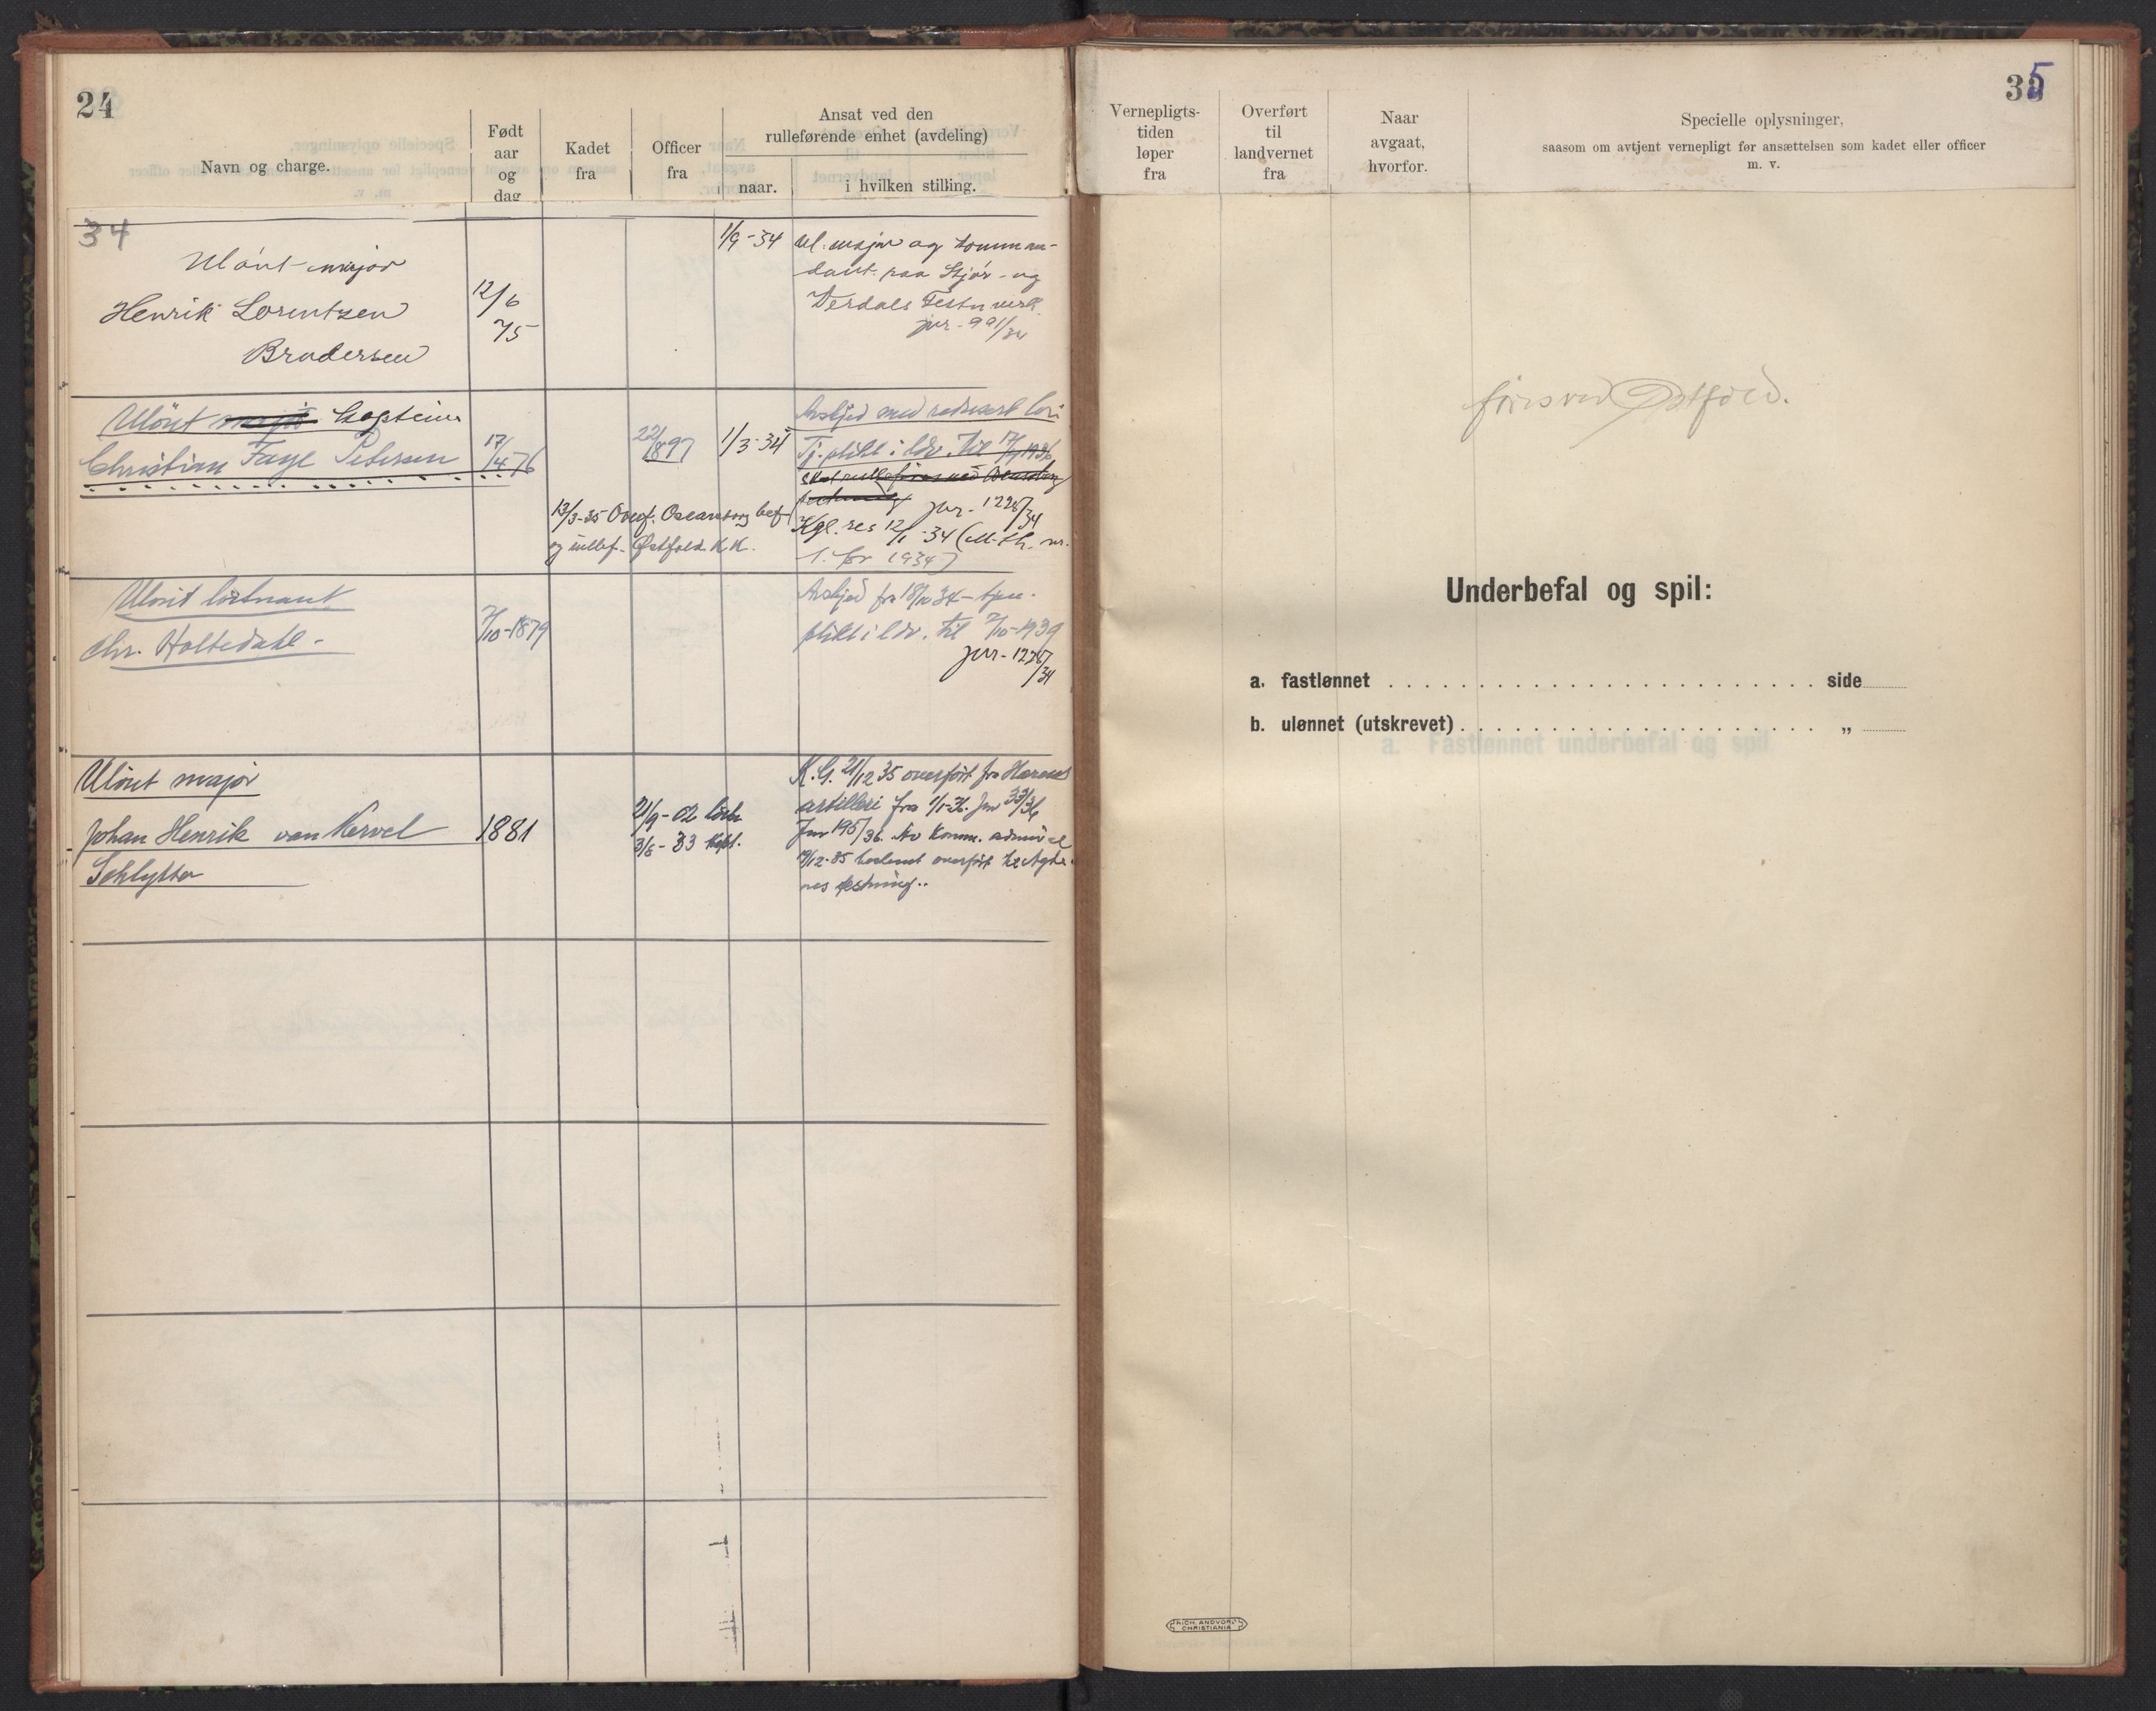 24
Navn og charge.
Født
aar
og
dag
Kadet
fra
Officer
fra
Ansat ved den
rulleførende enhet (avdeling)
naar.
i hvilken stilling.
34
Ulønt major
Henrik Lorentzen
Brodersen
12/6
75
1/9-34
Ul. major og komman-
dant paa Stjør- og
Verdals Festn.verk.
jnr. 991/34
Ulönt major Captein
Christian Faye Petersen
17/4 76
22/ 897
1/3-34
Avskjed med
Tj.plikt i ldv. til 17/4 1936
jnr. 1228/34
13/3-35 Overf. Oscarsborg bef.
og rullef. Østfold K K.
Kgl. res 12/1-34 (M.th. nr.
1. for 1934)
Ulönt löitnant
Chr. Holtedahl -
7/10-1879
Avskjed fra 18/10 34 -
plikt i ldv. til 7/10-1939
jnr- 1228/34
Ulönt major
Johan Henrik van Kervel
Schlytter
1881
21/9-02 löitn
3/8-33 Kapt.
K.G. 21/12 35 overfört fra Hærens
artilleri fra 1/1-36. Jnr 33/36
Jnr 195/36. Av Komm. admiral
/12-35 bestemt overfört til Agde-
nes festning..
35
Vernepligts-
tiden
løper
fra
Overført
til
landvernet
fra
Naar
avgaat,
hvorfor.
Specielle oplysninger,
saasom om avtjent vernepligt før ansættelsen som kadet eller officer
m. v.
föres ved Östfold.
Underbefal og spil:
a. fastlønnet . . . . . . . . . . . . . . . . . . . . . . . . side
b. ulønnet (utskrevet) . . . . . . . . . . . . . . . . . . . . „
RICH. ANDVORD
CHRISTIANIA